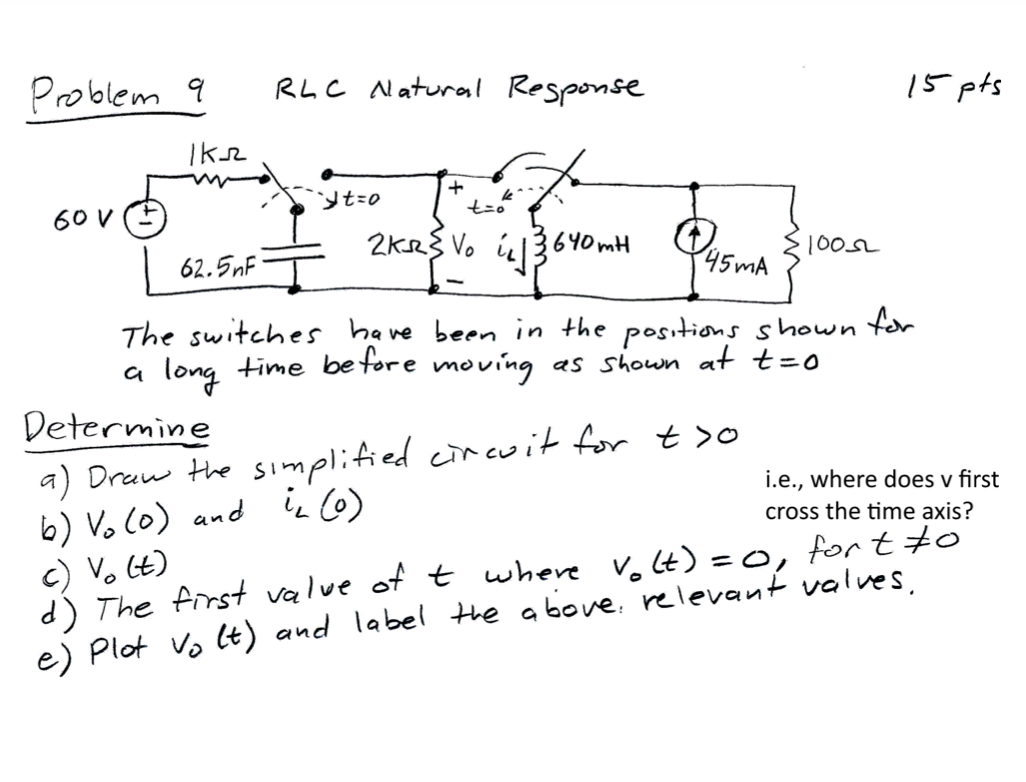 Problem 9 RLC Natural Response 15 pts
1KΩ
t=0
+
t=0
60 V
+
-
2KΩ
Vo
iL
640mH
100Ω
62.5nF
45mA
-
The switches have been in the positions shown for
a long time before moving as shown at t=0
Determine
a) Draw the simplified circuit for t>0
i.e., where does v first
cross the time axis?
b) Vo(0) and iL(0)
c) Vo(t)
d) The first value of t where Vo(t) = 0, for t ≠ 0
e) Plot Vo(t) and label the above relevant values.